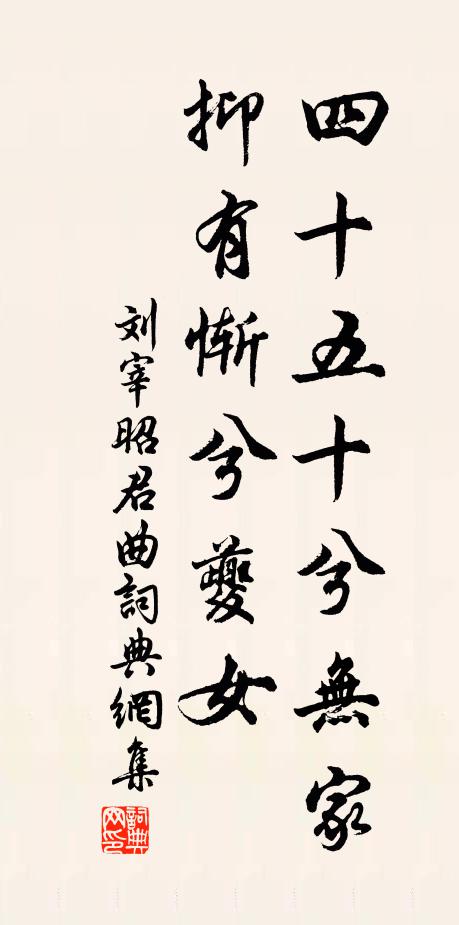 四十五十兮無家
抑有慚兮夔女
刘宰昭君曲詞典網集
詞典网印